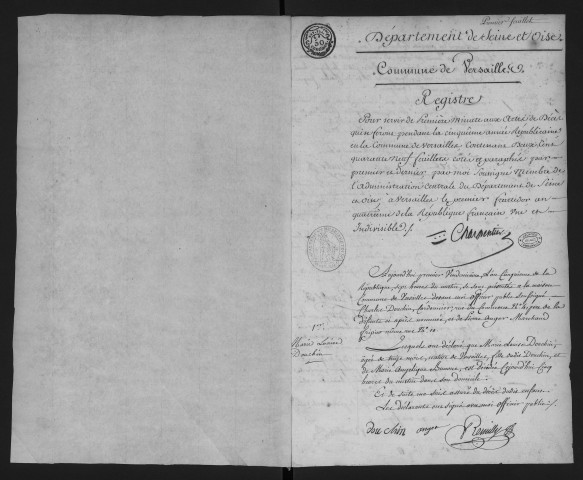 Premier feuillet
Département de Seine et Oise.
Commune de Versailles.
Registre
Pour servir de Première Minute aux Actes de Décès
qui se feront pendant la cinquième année Républicaine
en la Commune de Versailles Contenant Deux Cent
quarante Neuf feuillets côtés et paraphés par
premier et dernier par moi soussigné Membre de
l'Administration Centrale du Département de Seine
et Oise à Versailles le premier fructidor an
quatrième de la République française Une et
Indivisible ./.
Charpentier
Aujourd'hui premier Vendémiaire, l'an Cinquième de la
République, sept heures du matin, se sont présentés à la maison
Commune de Versailles devant moi officier public soussigné
Charles Douchin, Cordonnier, rue N.o père de la
défunte ci après nommée, et de Pierre Auger Marchand
fripier même rue N.o 10.
1.er
Marie Louise
Douchin
Lesquels ont déclaré que Marie Louise Douchin,
âgée de mois, native de Versailles, fille dudit Douchin, et
de Marie Angélique est décédée aujourd'hui cinq
heures du matin dans son domicile.
Et de suite me suis assuré du décès dudit enfant.
Les déclarants ont signé avec moi officier public ./.
Douchin auger Remilly